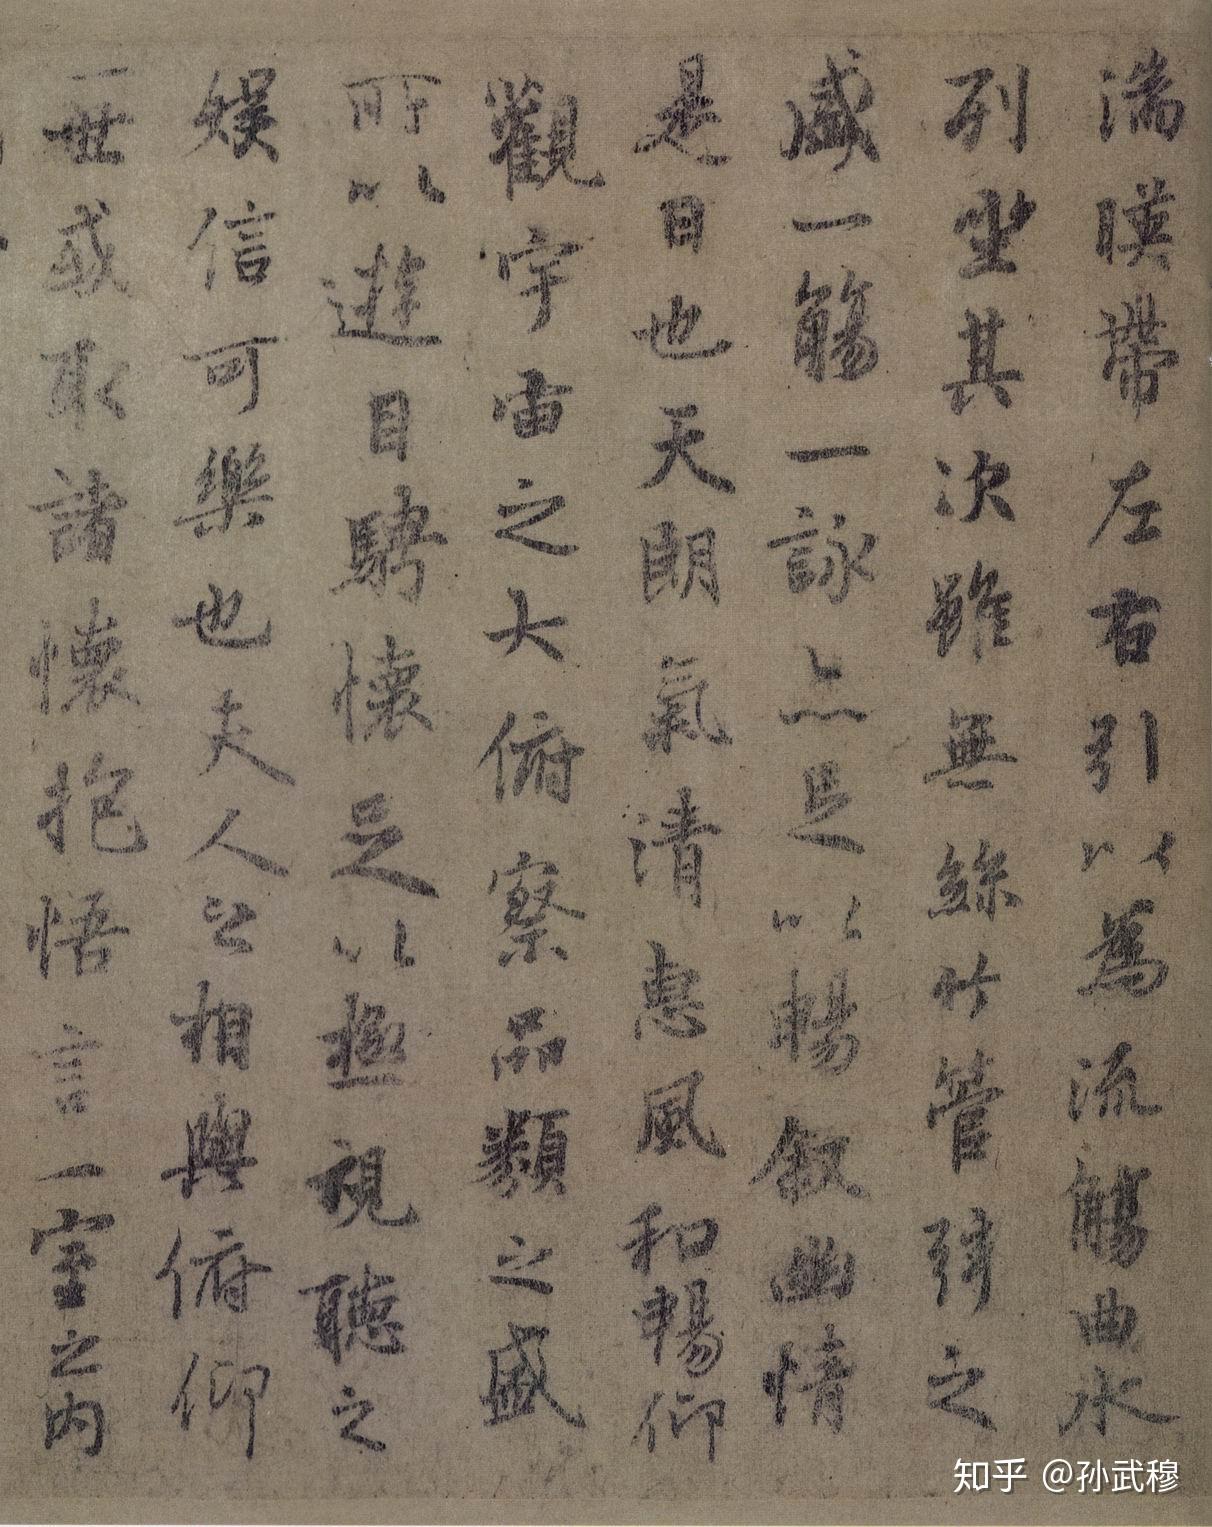 湍暎帶左右引以為流觴曲水
列坐其次雖無絲竹管弦之
盛一觴一詠亦足以暢敘幽情
是日也天朗氣清惠風和暢仰
觀宇宙之大俯察品類之盛
所以遊目騁懷足以極視聽之
娛信可樂也夫人之相與俯仰
一世或取諸懷抱悟言一室之內
知乎 @孙武穆